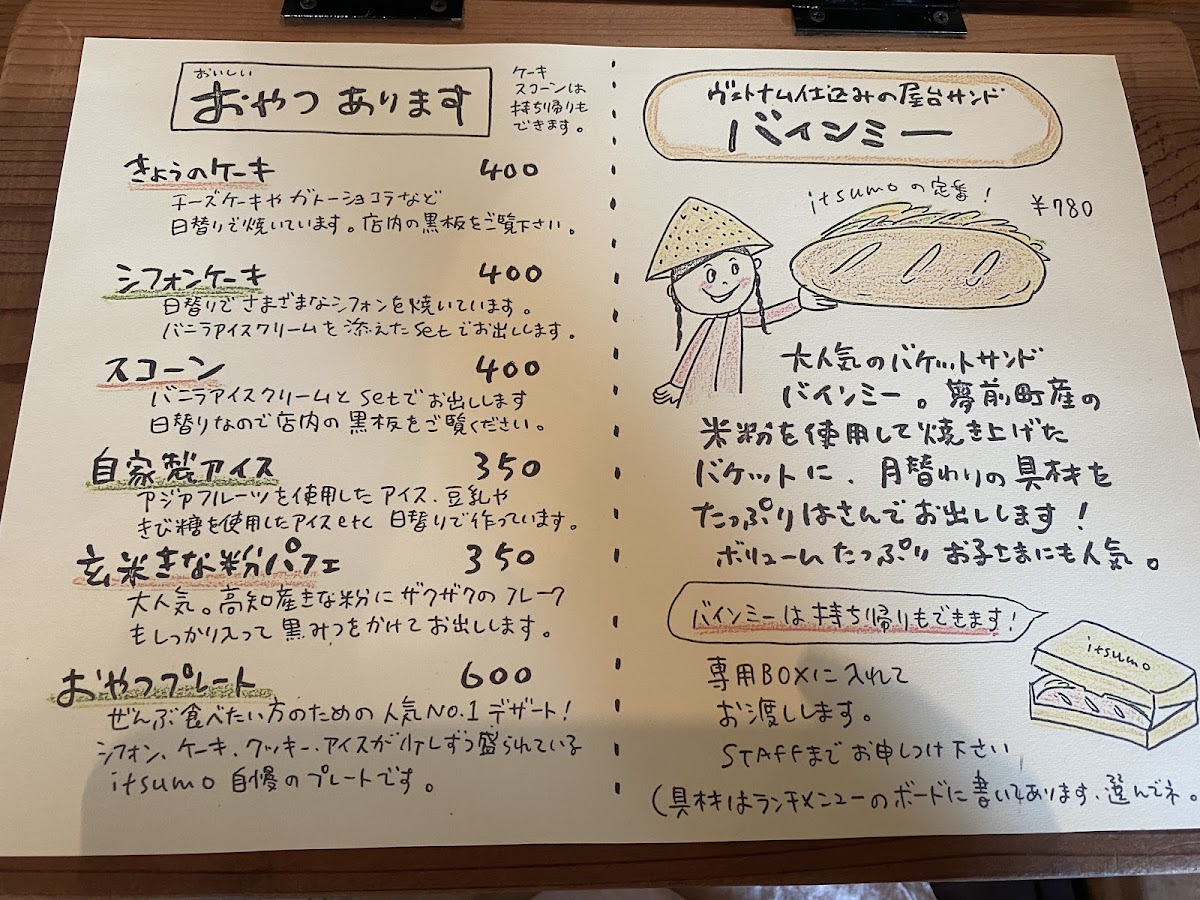 おいしい
おやつ あります
ケーキ
スコーンは
持ち帰りも
できます。
きょうのケーキ 400
チーズケーキや ガトーショコラなど
日替りで焼いています。店内の黒板をご覧下さい。
シフォンケーキ 400
日替りで さまざまなシフォンを焼いています。
バニラアイスクリームを添えたsetでお出しします。
スコーン 400
バニラアイスクリームと setでお出しします
日替りなので店内の黒板をご覧ください。
自家製アイス 350
アジアフルーツを使用したアイス、豆乳や
きび糖を使用したアイスetc 日替りで作っています。
玄米きな粉パフェ 350
大人気。高知産きな粉に ザクザクの フレーク
もしっかり入って 黒みつをかけて お出しします。
おやつプレート 600
ぜんぶ食べたい方のための 人気NO.1 デザート!
シフォン、ケーキ、クッキー、アイスが少しずつ盛られている
itsumo 自慢のプレートです。
ヴェトナム仕込みの屋台サンド
バインミー
itsumoの定番!
¥780
大人気のバケットサンド
バインミー。夢前町産の
米粉を使用して焼き上げた
バケットに、月替わりの具材を
たっぷりはさんでお出しします!
ボリュームたっぷり お子さまにも人気。
バインミーは持ち帰りもできます!
itsumo
専用BOXに入れて
お渡しします。
STAFFまでお申しつけ下さい
(具材はランチメニューのボードに書いてあります、選んでネ。